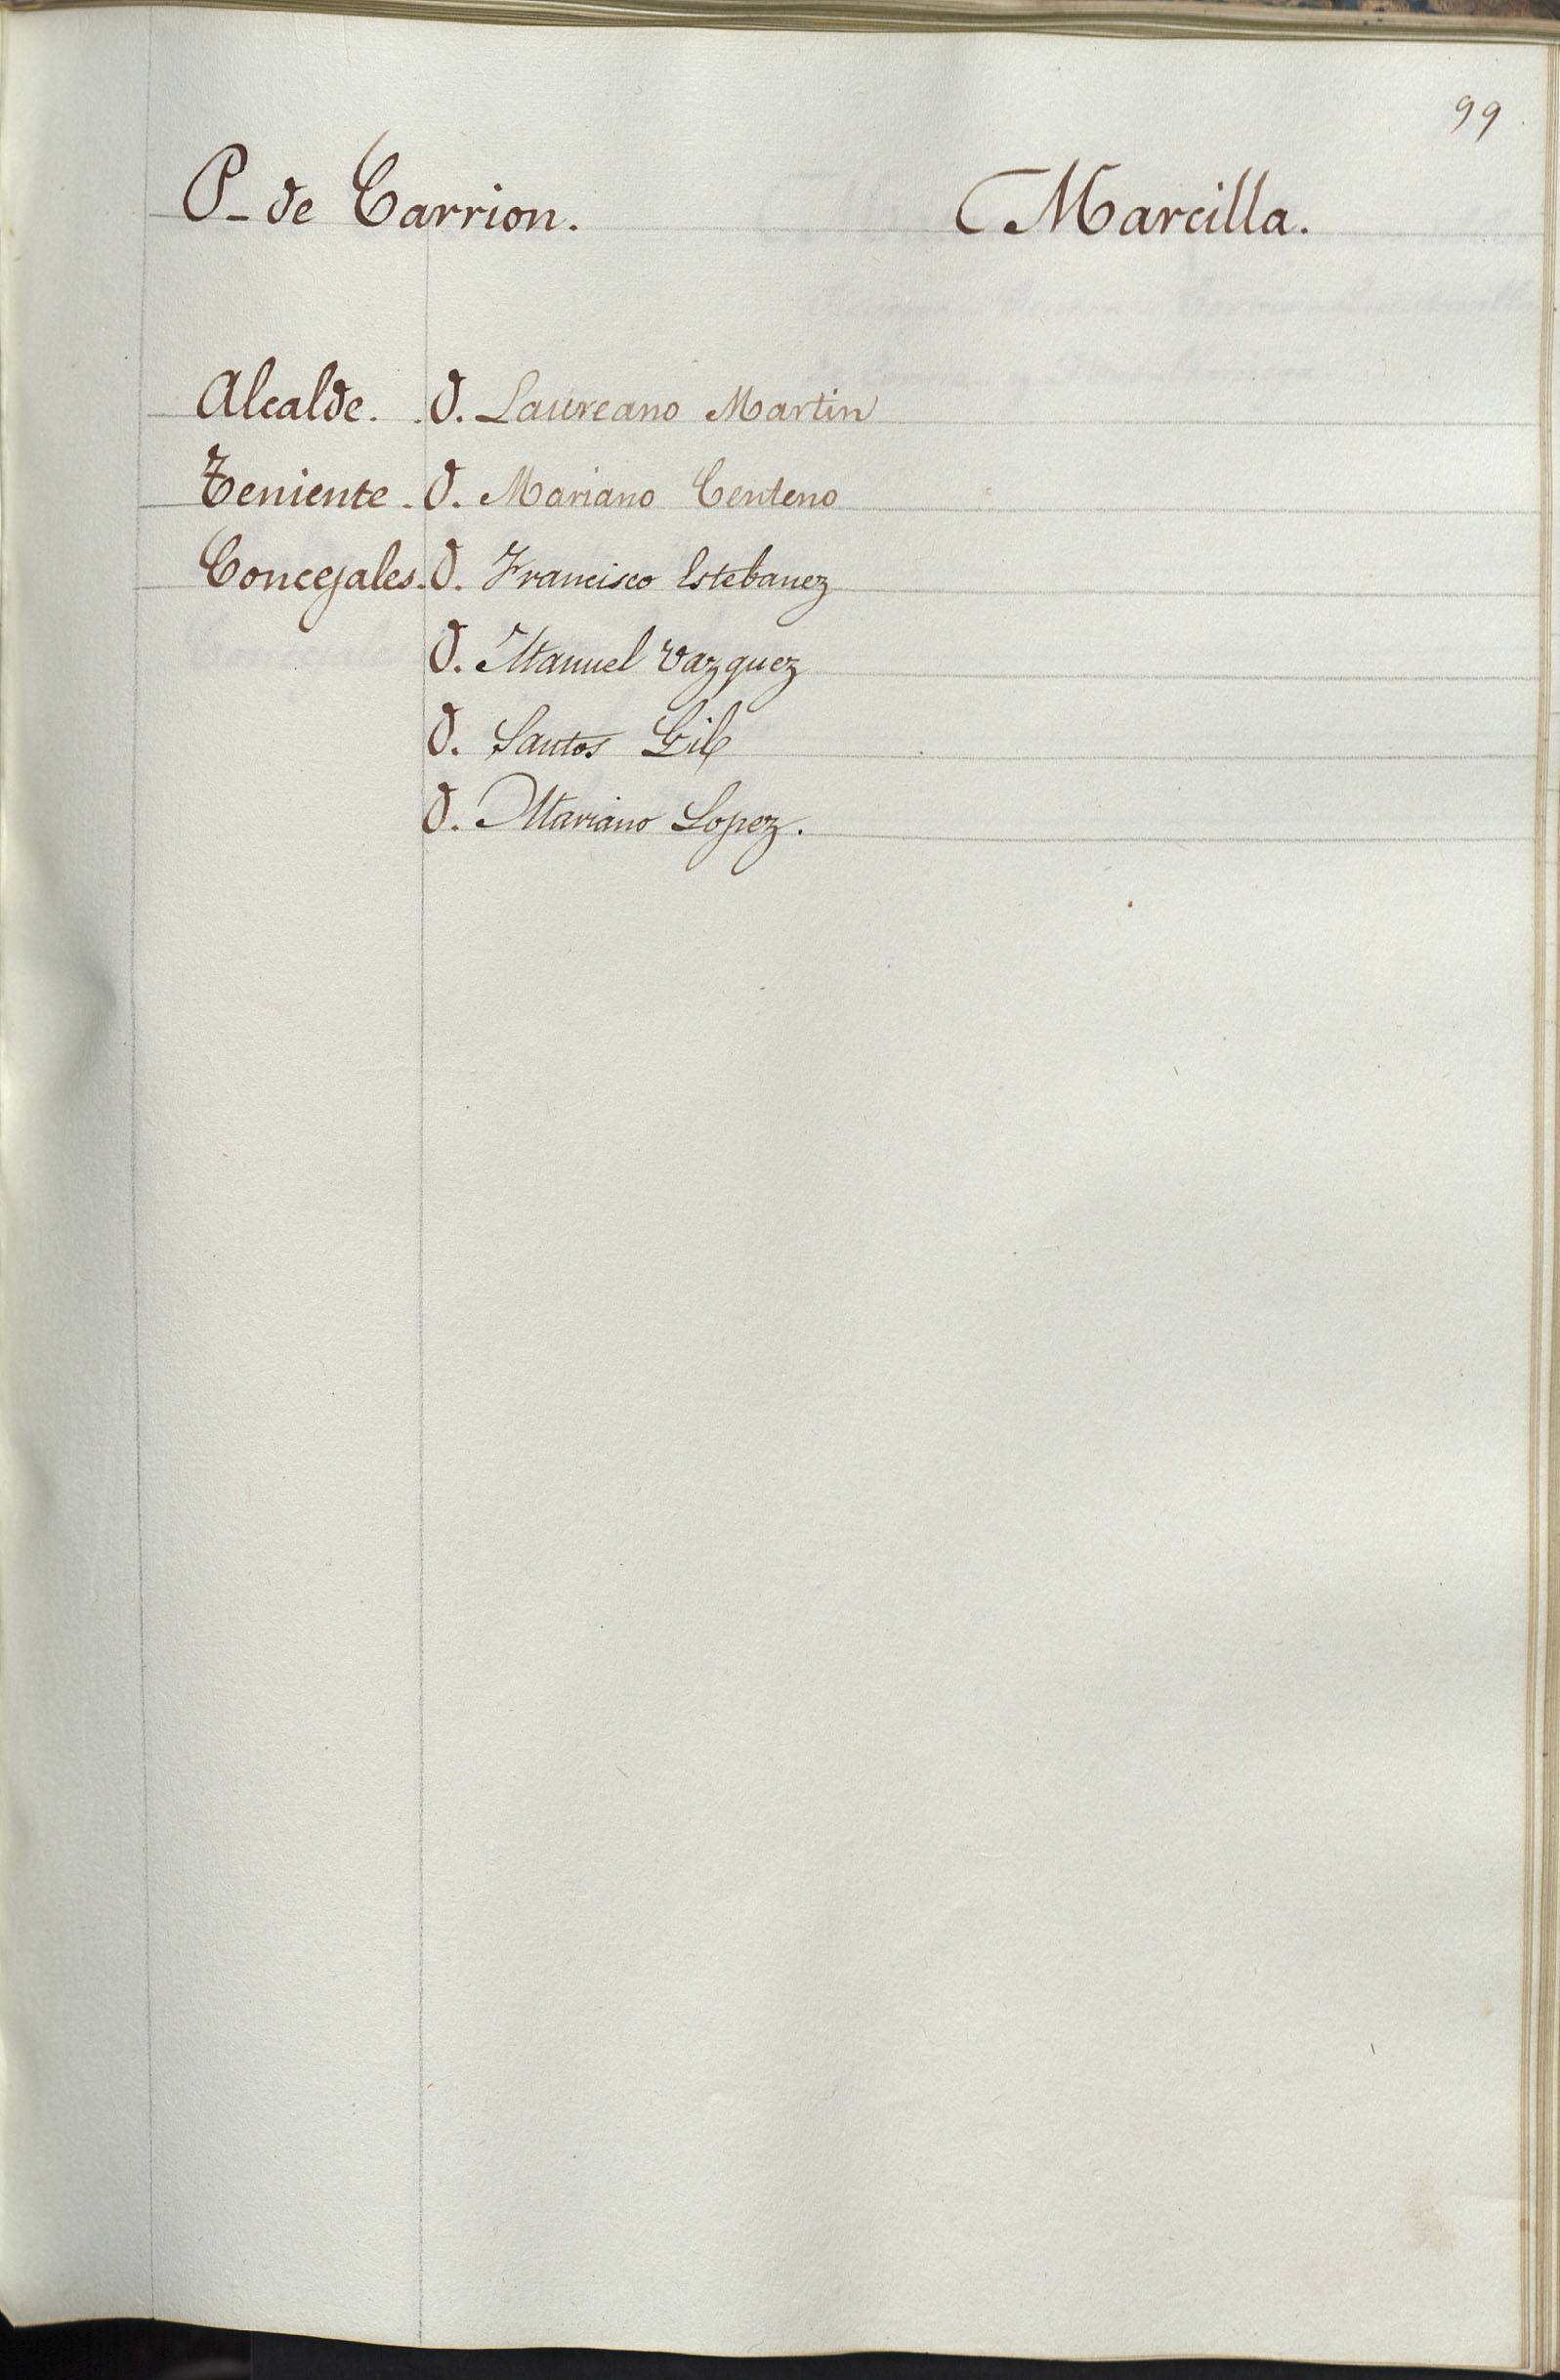 99
P- de Carrion. Marcilla.
Alcalde. D. Laureano Martin
Teniente. D. Mariano Centeno
Concejales. D. Francisco Estebanez
D. Manuel Vazquez
D. Santos Gil
D. Mariano Lopez.